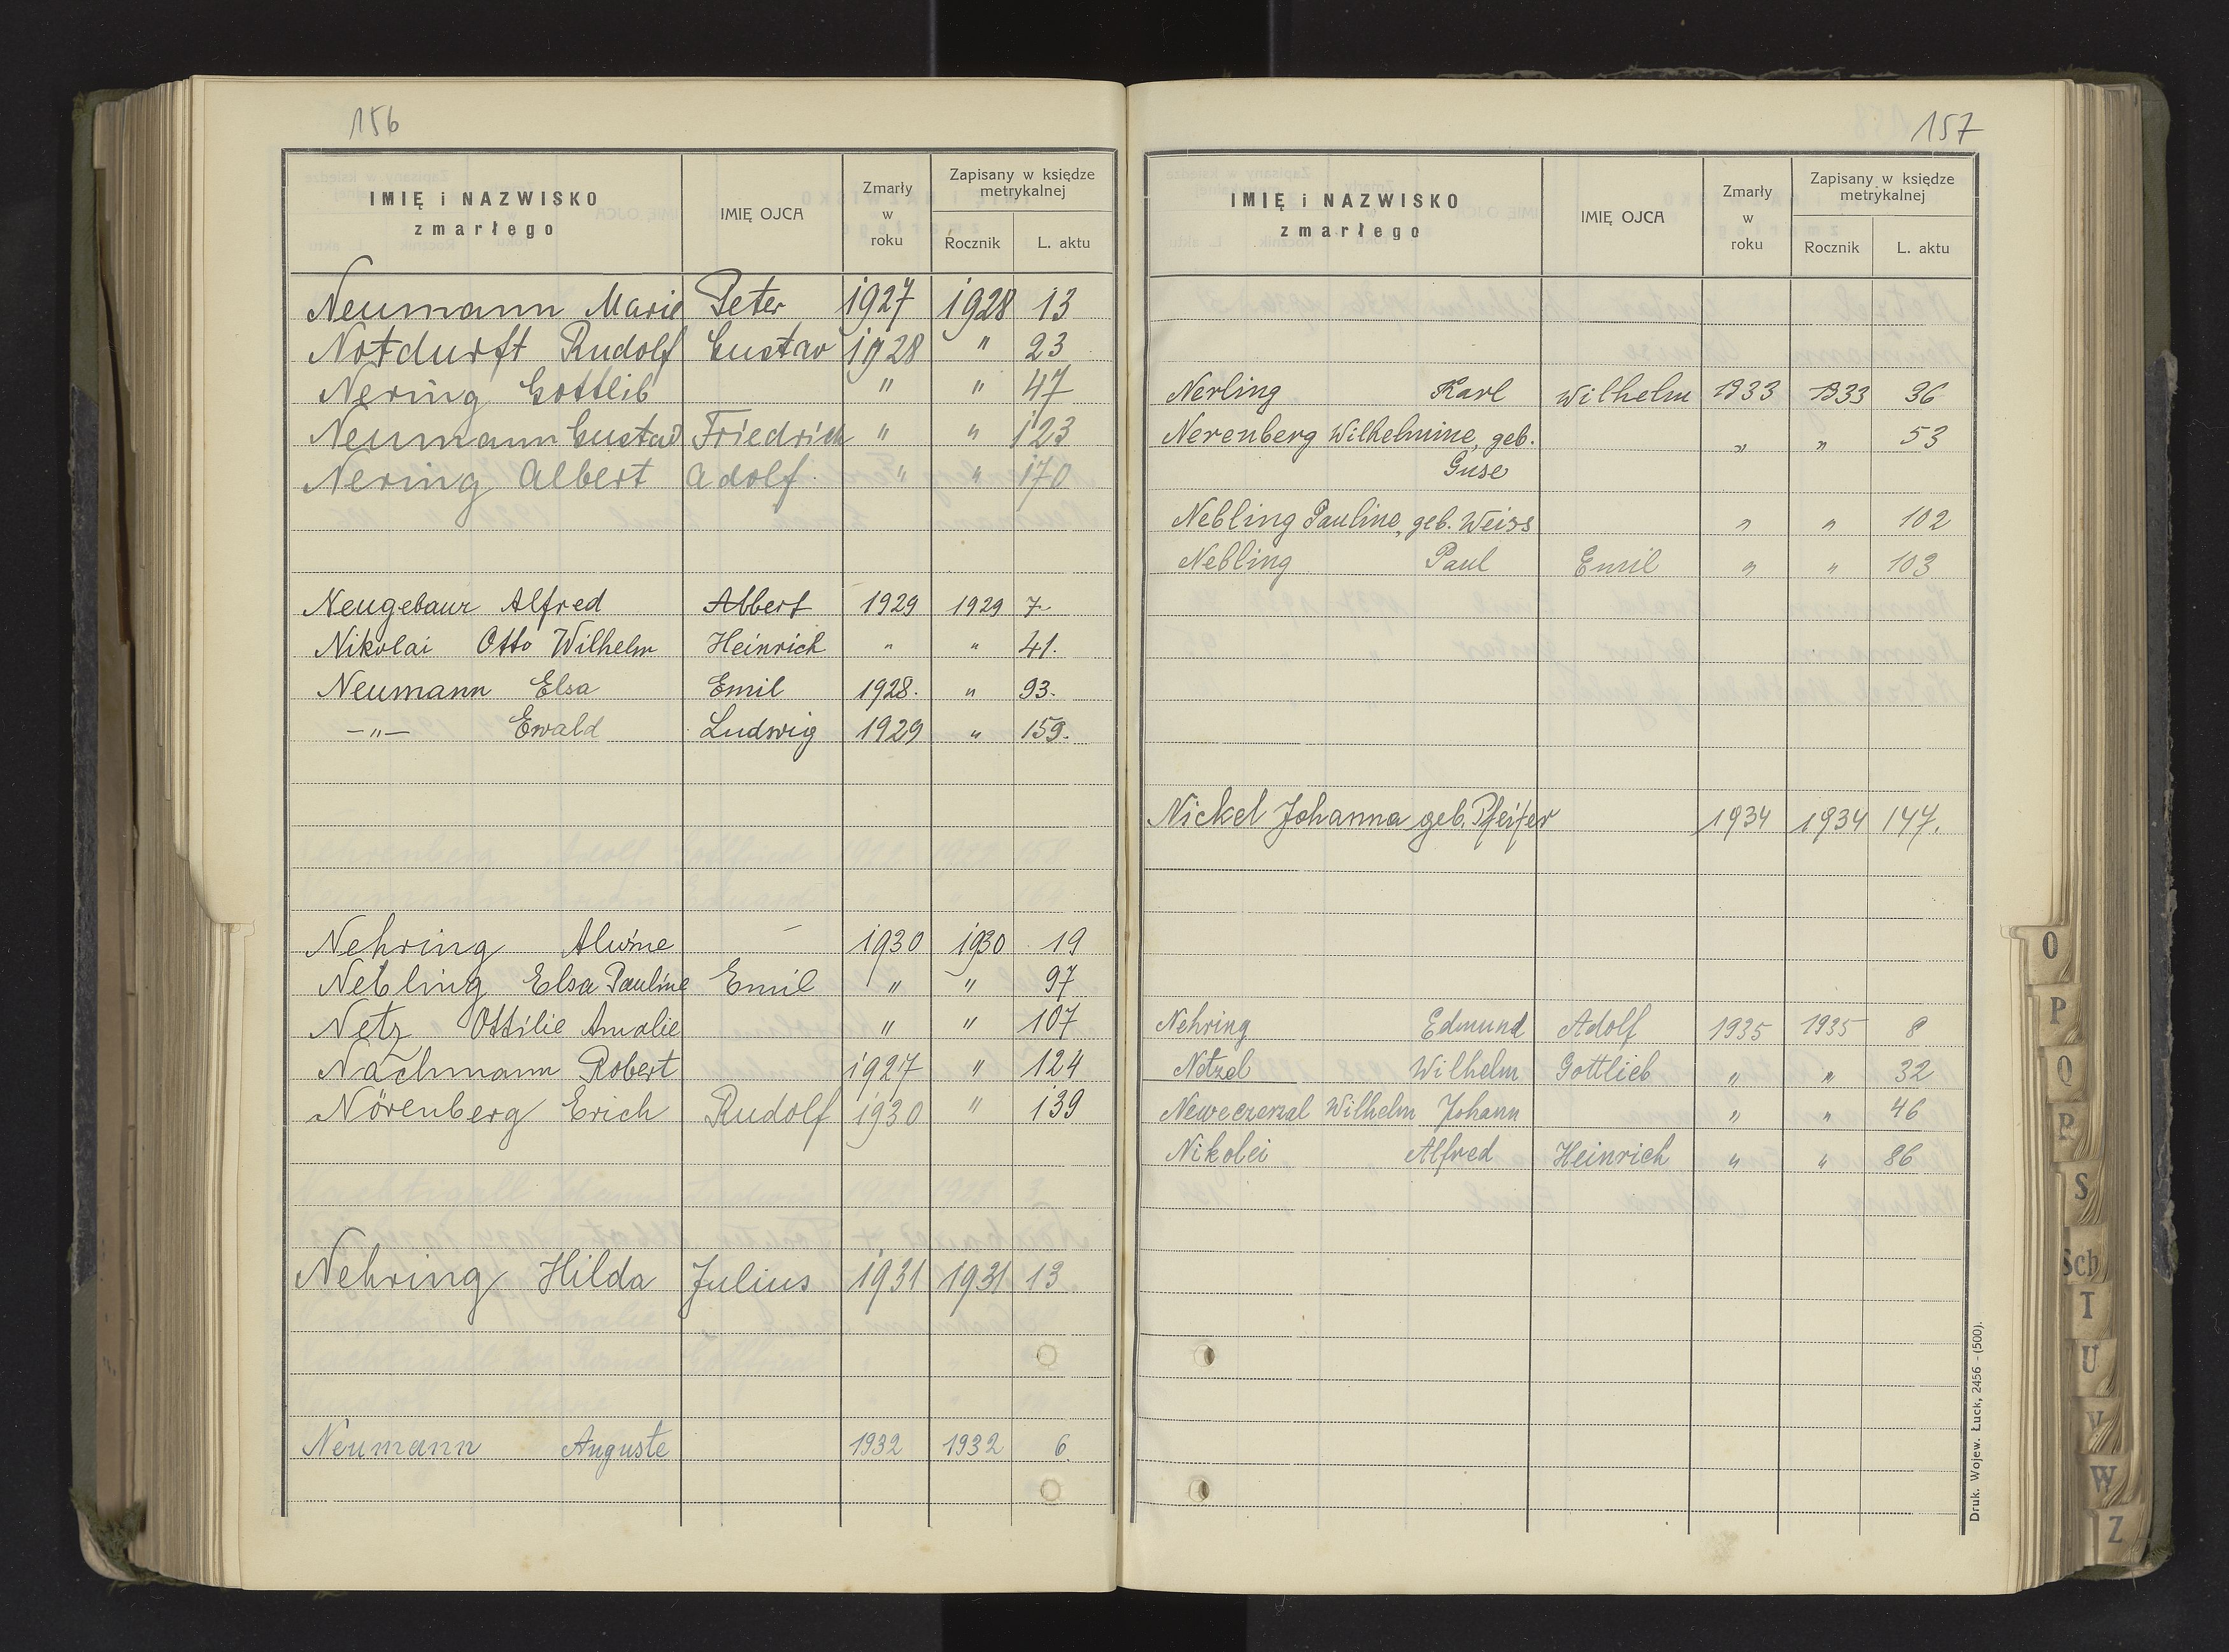 156
IMIĘ i NAZWISKO zmarłego IMIĘ OJCA Zmarły w roku Zapisany w księdze metrykalnej Rocznik L. aktu
Neumann Marie Peter 1927 1928 13
Notdurft Rudolf Gustav 1928 " 23
Nering Gottlib " " 47
Neumann Gustav Friedrich " " 123
Nering Albert Adolf " " 170
Neugebaur Alfred Albert 1929 1929 7.
Nikolai Otto Wilhelm Heinrich " " 41.
Neumann Elsa Emil 1928. " 93.
—"— Ewald Ludwig 1929 " 159.
Nehring Alwine — 1930 1930 19
Nebling Elsa Pauline Emil " " 97
Netz Ottilie Amalie " " 107
Nachmann Robert 1927 " 124
Nörenberg Erich Rudolf 1930 " 139
Nehring Hilda Julius 1931 1931 13
Neumann Auguste 1932 1932 6.
157
IMIĘ i NAZWISKO zmarłego IMIĘ OJCA Zmarły w roku Zapisany w księdze metrykalnej Rocznik L. aktu
Nerling Karl Wilhelm 1933 1933 36
Nerenberg Wilhelmine, geb. " " 53
Guse
Nebling Pauline, geb. Weiss " " 102
Nebling Paul Emil " " 103
Nickel Johanna geb. Pfeifer 1934 1934 147.
Nehring Edmund Adolf 1935 1935 8
Netzel Wilhelm Gottlieb " " 32
Wilhelm Johann " " 46
Nikolei Alfred Heinrich " " 86
Druk. Wojew. Łuck, 2456 - (500).
O
P
Q
R
S
Sch
T
U
V
W
Z